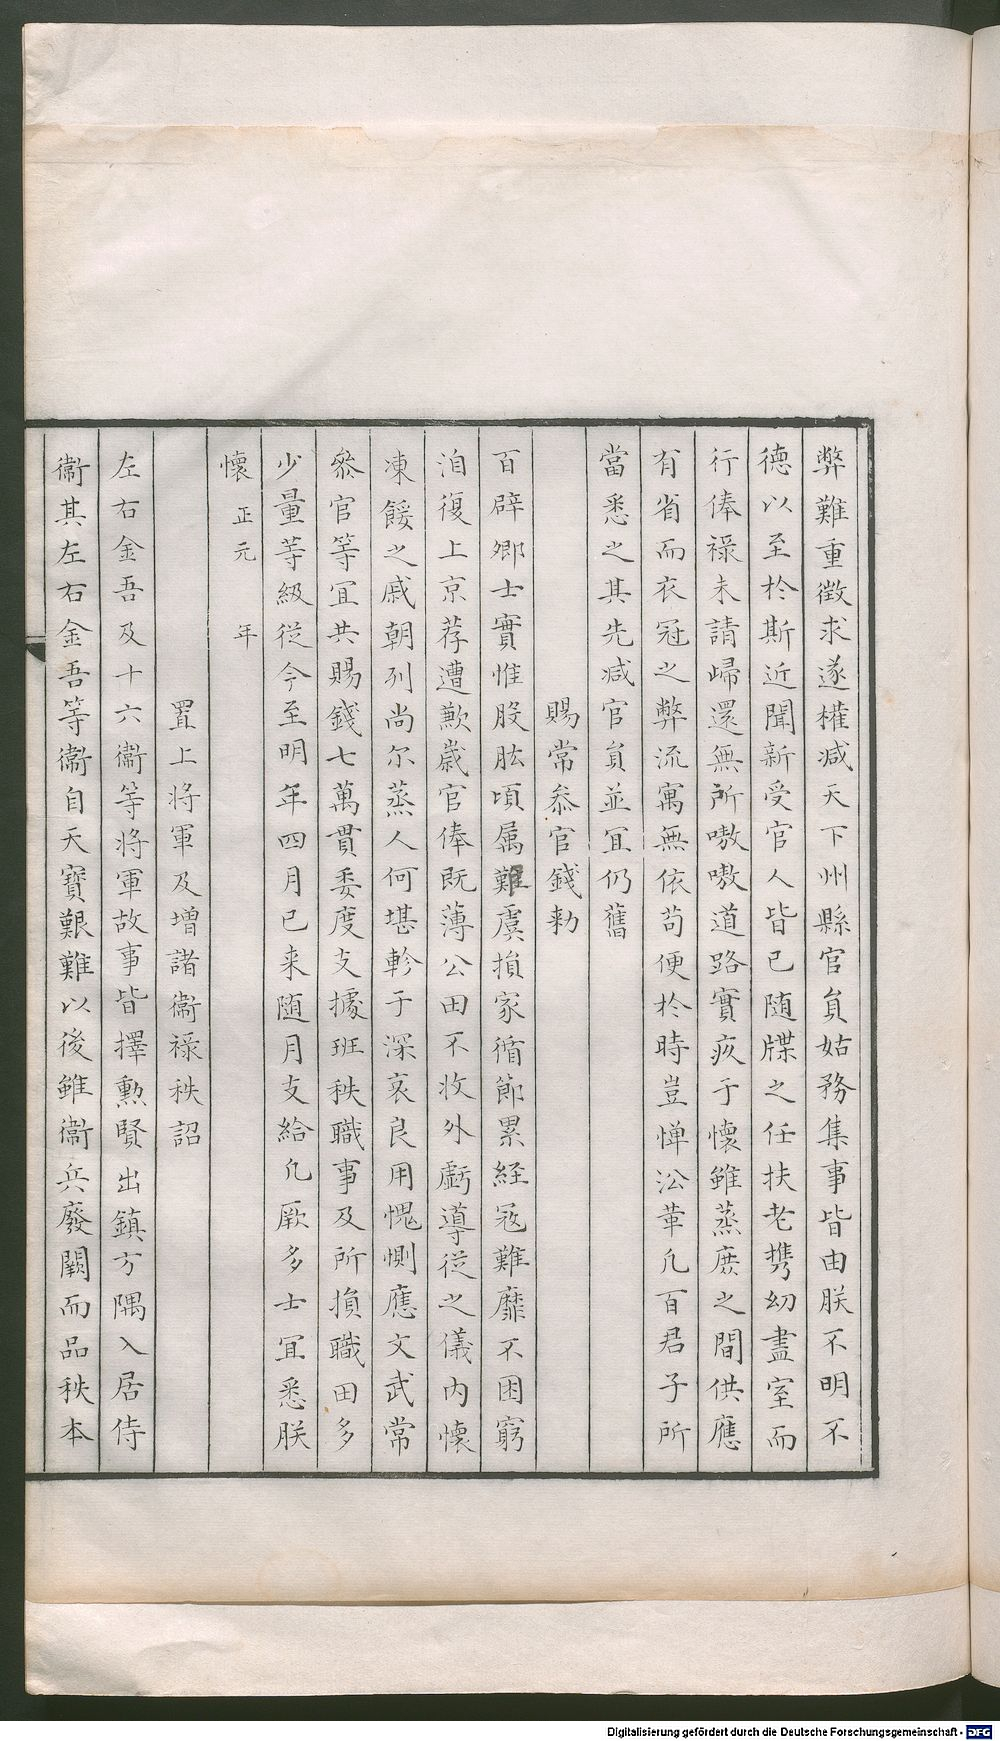 弊難重徵求遂權减天下州縣官貟姑務集事皆由朕不明不
德以至於斯近聞新受官人皆已随牒之任扶老携幼盡室而
行俸禄未請歸還無所嗷嗷道路實疚于懷雖蒸庶之間供應
有省而衣冠之弊流寓無依苟便於時豈憚㳂革凢百君子所
當悉之其先减官貟並冝仍舊
賜常叅官錢勅
百辟卿士實惟股肱頃属難虞損家循節累経冦難靡不困窮
洎復上京荐遭歉歲官俸既薄公田不收外虧導従之儀内懷
凍餒之戚朝列尚尔蒸人何堪軫于深哀良用愧惻應文武常
叅官等冝共賜錢七萬貫委度支據班秩職事及所損職田多
少量等級従今至明年四月已来随月支給凢厥多士冝悉朕
懷 正元 年
置上将軍及增諸衞禄秩詔
左右金吾及十六衞等将軍故事皆擇勲賢出鎮方隅入居侍
衞其左右金吾等衞自天寶艱難以後雖衞兵廢闕而品秩本
Digitalisierung gefördert durch die Deutsche Forschungsgemeinschaft - DFG